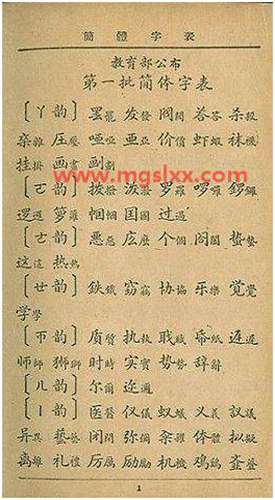 簡體字表
教育部公布
第一批简体字表
〔ㄚ韵〕 罢罷 发發 阀閥 答荅 杀殺
杂雜 压壓 哑啞 亚亞 价價 虾蝦 袜襪
挂掛 画畫 划劃
www.mgslxx.com
〔ㄛ韵〕 拨撥 泼潑 罗羅 啰囉 锣鑼
逻邏 箩籮 帼幗 国國 过過
〔ㄜ韵〕 恶惡 庅麼 个個 阁閣 蛰蟄
这這 热熱
〔ㄝ韵〕 鉄鐵 窃竊 协協 乐樂 觉覺
学學
〔ㄭ韵〕 质質 执執 职職 帋紙 迟遲
师師 狮獅 时時 实實 势勢 辞辭
〔ㄦ韵〕 尔爾 迩邇
〔ㄧ韵〕 医醫 仪儀 蚁蟻 义義 议議
异異 艺藝 闭閉 弥彌 籴糴 体體 拟擬
离離 礼禮 厉厲 励勵 机機 鸡鷄
1